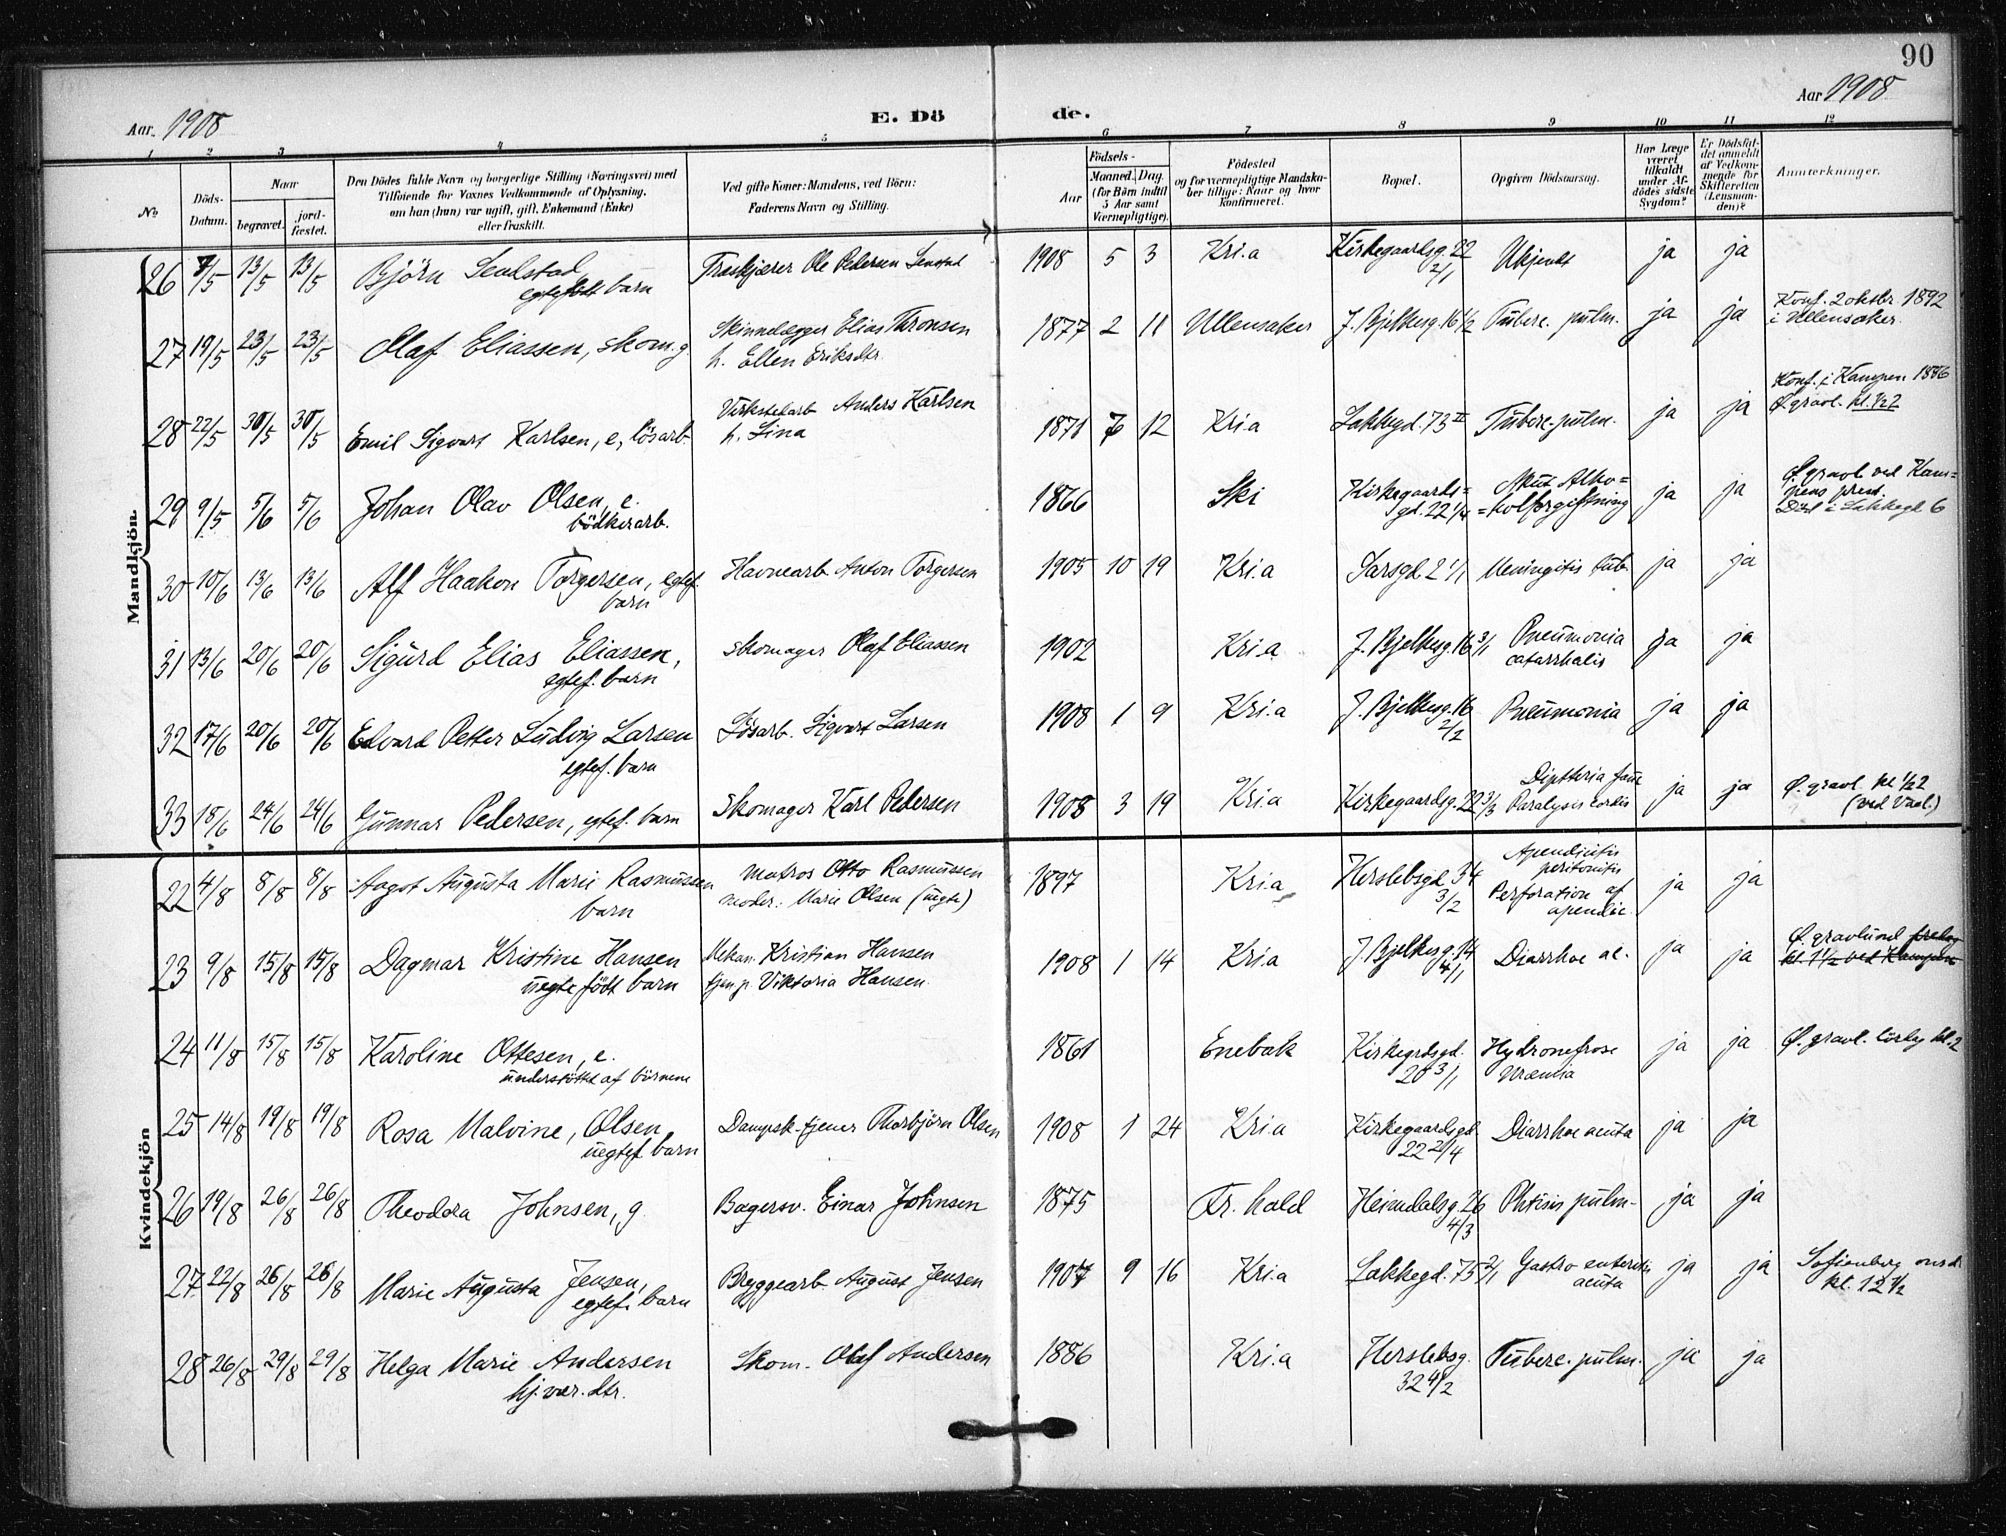 90
Aar. 1908
E. Dö
de.
Aar 1908
1 2 3 4 5 6 7 8 9 10 11 12
No
Döds-
Datum.
Naar
begravet.
jord-
fæstet.
Den Dödes fulde Navn og borgerlige Stilling (Næringsvei) med
Tilföiende for Voxnes Vedkommende af Oplysning,
om han (hun) var ugift, gift, Enkemand (Enke)
eller fraskilt.
Ved gifte Koner: Mandens, ved Börn:
Faderens Navn og Stilling.
Födsels-
Aar
Maaned. Dag.
(for Börn indtil
5 Aar samt
Værnepligtige).
Födested
og for værnepligtige Mandska-
ber tillige: Naar og hvor
konfirmeret.
Bopæl.
Opgiven Dödsaarsag.
Har Læge
været
tilkaldt
under Af-
dödes sidste
Sygdom?
Er Dödsfal-
det anmeldt
af Vedkom-
mende for
Skifteretten
(Lensman-
den)?
Anmærkninger.
Mandkjön.
26 7/5 13/5 13/5 Björn Senstad Træskjærer Ole Pedersen Senstad 1908 5 3 Kri.a Kirkegaardsg. 22 Ukjendt ja ja
egtefödt barn 2/1
27 19/5 23/5 23/5 Olaf Eliassen, skom. g. Skinnelægger Elias Thronsen 1877 2 11 Ullensaker J. Bjelkesg. 16 1/2 Tuberc. pulm. ja ja Konf. 2 oktbr. 1892
h. Ellen Eriksdtr. i Ullensaker.
28 22/5 30/5 30/5 Emil Sigvart Karlsen, e, lösarb. Verkstedarb Anders Karlsen 1871 7 12 Kri.a Lakkegd. 73 II Tuberc. pulm. ja ja Konf. i Kampen 1886
h. Lina Ø. gravl. kl. 1/2 2
29 9/5 5/6 5/6 Johan Olav Olsen, e. 1866 Ski Kirkegaards= Akut Alko= ja ja Ø gravl ved Kam=
bödkerarb. gd. 22 1/4 =holforgiftning pens prest.
Död i Lakkegd 6
30 10/6 13/6 13/6 Alf Haakon Torgersen, egtef. Havnearb. Anton Torgersen 1905 10 19 Kri.a Sarsgd. 2 1/1 Meningitis tub. ja ja
barn
31 13/6 20/6 20/6 Sigurd Elias Eliassen, Skomager Olaf Eliassen 1902 Kri.a J. Bjelkesg. 16 3/1 Pneumonia ja ja
egtef. barn catarrhalis
32 17/6 20/6 20/6 Edvard Petter Ludvig Larsen Lösarb. Sigvart Larsen 1908 1 9 Kri.a J. Bjelkesg. 16 Pneumonia ja ja
egtef. barn 2/2
33 18/6 24/6 24/6 Gunnar Pedersen, egtef. barn Skomager Karl Pedersen 1908 3 19 Kri.a Kirkegaardsg. 22 3/3 Diptteria fauc ja ja Ø. gravl. kl 1/2 2
Paralysis cordis (ved Vaal.)
Kvindekjön
22 4/8 8/8 8/8 Aagot Augusta Marie Rasmussen matros Otto Rasmussen 1897 Kri.a Herslebsgd. 34 Apendicitis ja ja
barn moder: Marie Olsen (ugte) 3/2 peritonitis
Perforation af
apendic.
23 9/8 15/8 15/8 Dagmar Kristine Hansen Mekan. Kristian Hansen 1908 1 14 Kri.a J. Bjelkesg. 14 Diarrhoe ac. ja ja Ø. gravlund
uegte födt barn tjen.p. Viktoria Hansen. 4/1 kl. 1 1/2 ved Kampen
24 11/8 15/8 15/8 Karoline Ottesen, e. 1861 Enebak Kirkegrdsgd. Hydronefrose ja ja Ø. gravl. lörleg kl. 2
understöttet af börnene 20 3/1 Uræmia
25 14/8 19/8 19/8 Rosa Malvine, Olsen Dampsk. tjener Thorbjörn Olsen 1908 1 24 Kri.a Kirkegaardsgd. Diarrhoe acuta ja ja
uegtef. barn 22 2/4
26 19/8 26/8 26/8 Theodora Johnsen, g. Bagersv. Einar Johnsen 1875 Fr. hald Heimdalsg. 26 Phtisis pulm. ja ja
4/3
27 22/8 26/8 26/8 Marie Augusta Jensen, Bryggearb. August Jensen 1907 9 16 Kri.a Lakkegd. 75 2/1 Gastro enteritis ja ja Sofienberg onsd.
egtef. barn acuta kl. 12 1/2
28 26/8 29/8 29/8 Helga Marie Andersen Skom. Olaf Andersen 1886 Kri.a Herslebsg. Tuberc. pulm. ja ja
hj.vær. dtr. 32 4/2